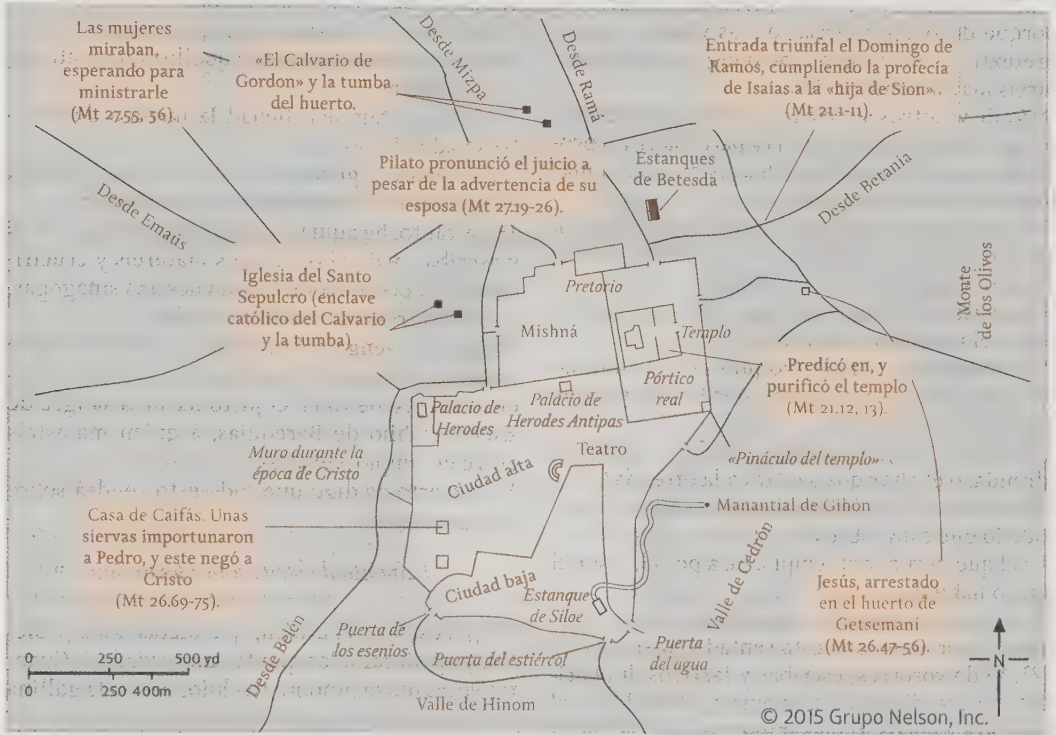 Las mujeres
miraban,
esperando para
ministrarle
(Mt 27.55, 56).
«El Calvario de
Gordon» y la tumba
del huerto.
Desde Mizpa
Desde Ramá
Entrada triunfal el Domingo de
Ramos, cumpliendo la profecía
de Isaías a la «hija de Sion».
(Mt 21.1-11).
Pilato pronunció el juicio a
pesar de la advertencia de su
esposa (Mt 27.19-26).
Estanques
de Betesda
Desde Betania
Desde Ematis
Iglesia del Santo
Sepulcro (enclave
católico del Calvario
y la tumba)
Pretorio
Mishná
Templo
Monte
de los Olivos
Pórtico
real
Predicó en, y
purificó el templo
(Mt 21.12, 13).
Palacio de
Herodes
Palacio de
Herodes Antipas
Muro durante la
época de Cristo
Teatro
Ciudad alta
«Pináculo del templo»
Manantial de Gihón
Casa de Caifás. Unas
siervas importunaron
a Pedro, y este negó a
Cristo
(Mt 26.69-75).
Valle de Cedrón
Ciudad baja
Estanque
de Siloe
Jesús, arrestado
en el huerto de
Getsemaní
(Mt 26.47-56).
Desde Belén
Puerta de
los esenios
Puerta del estiércol
Puerta
del agua
0 250 500 yd
0 250 400m
Valle de Hinom
N
© 2015 Grupo Nelson, Inc.